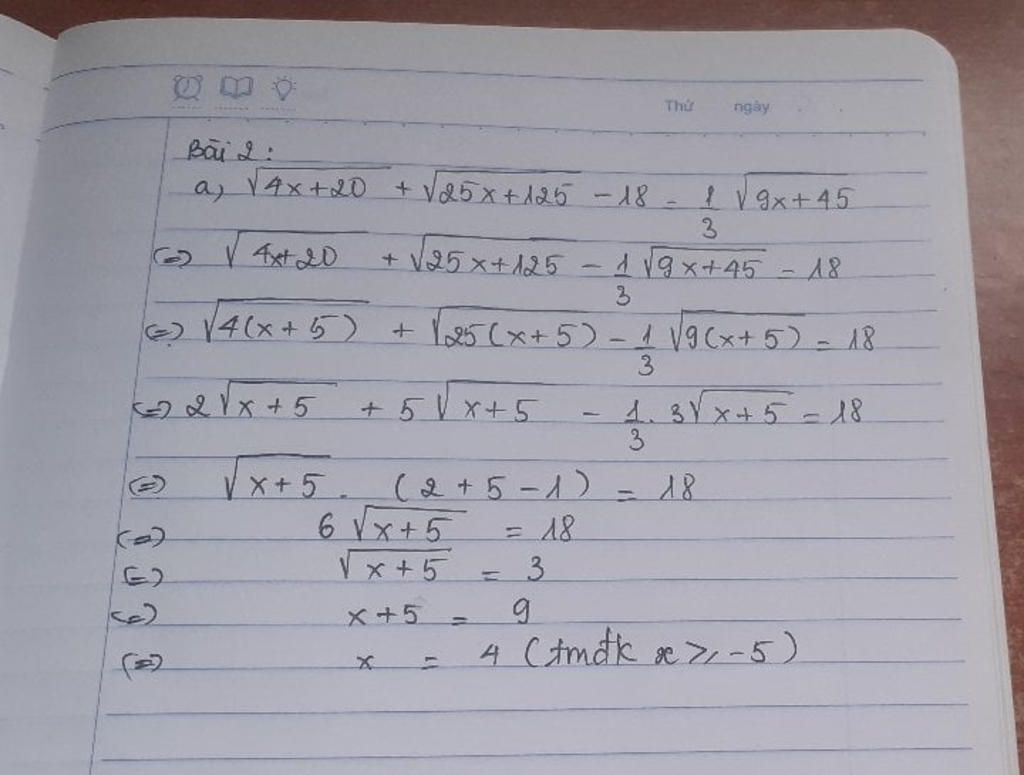 Thứ ngày
Bài 2:
a, √(4x+20) + √(25x+125) - 18 = 1/3 √(9x+45)
(=) √(4x+20) + √(25x+125) - 1/3 √(9x+45) = 18
(=) √(4(x+5)) + √(25(x+5)) - 1/3 √(9(x+5)) = 18
(=) 2√(x+5) + 5√(x+5) - 1/3 . 3√(x+5) = 18
(=) √(x+5) . (2+5-1) = 18
(=) 6√(x+5) = 18
(=) √(x+5) = 3
(=) x+5 = 9
(=) x = 4 (tmđk x ≥ -5)